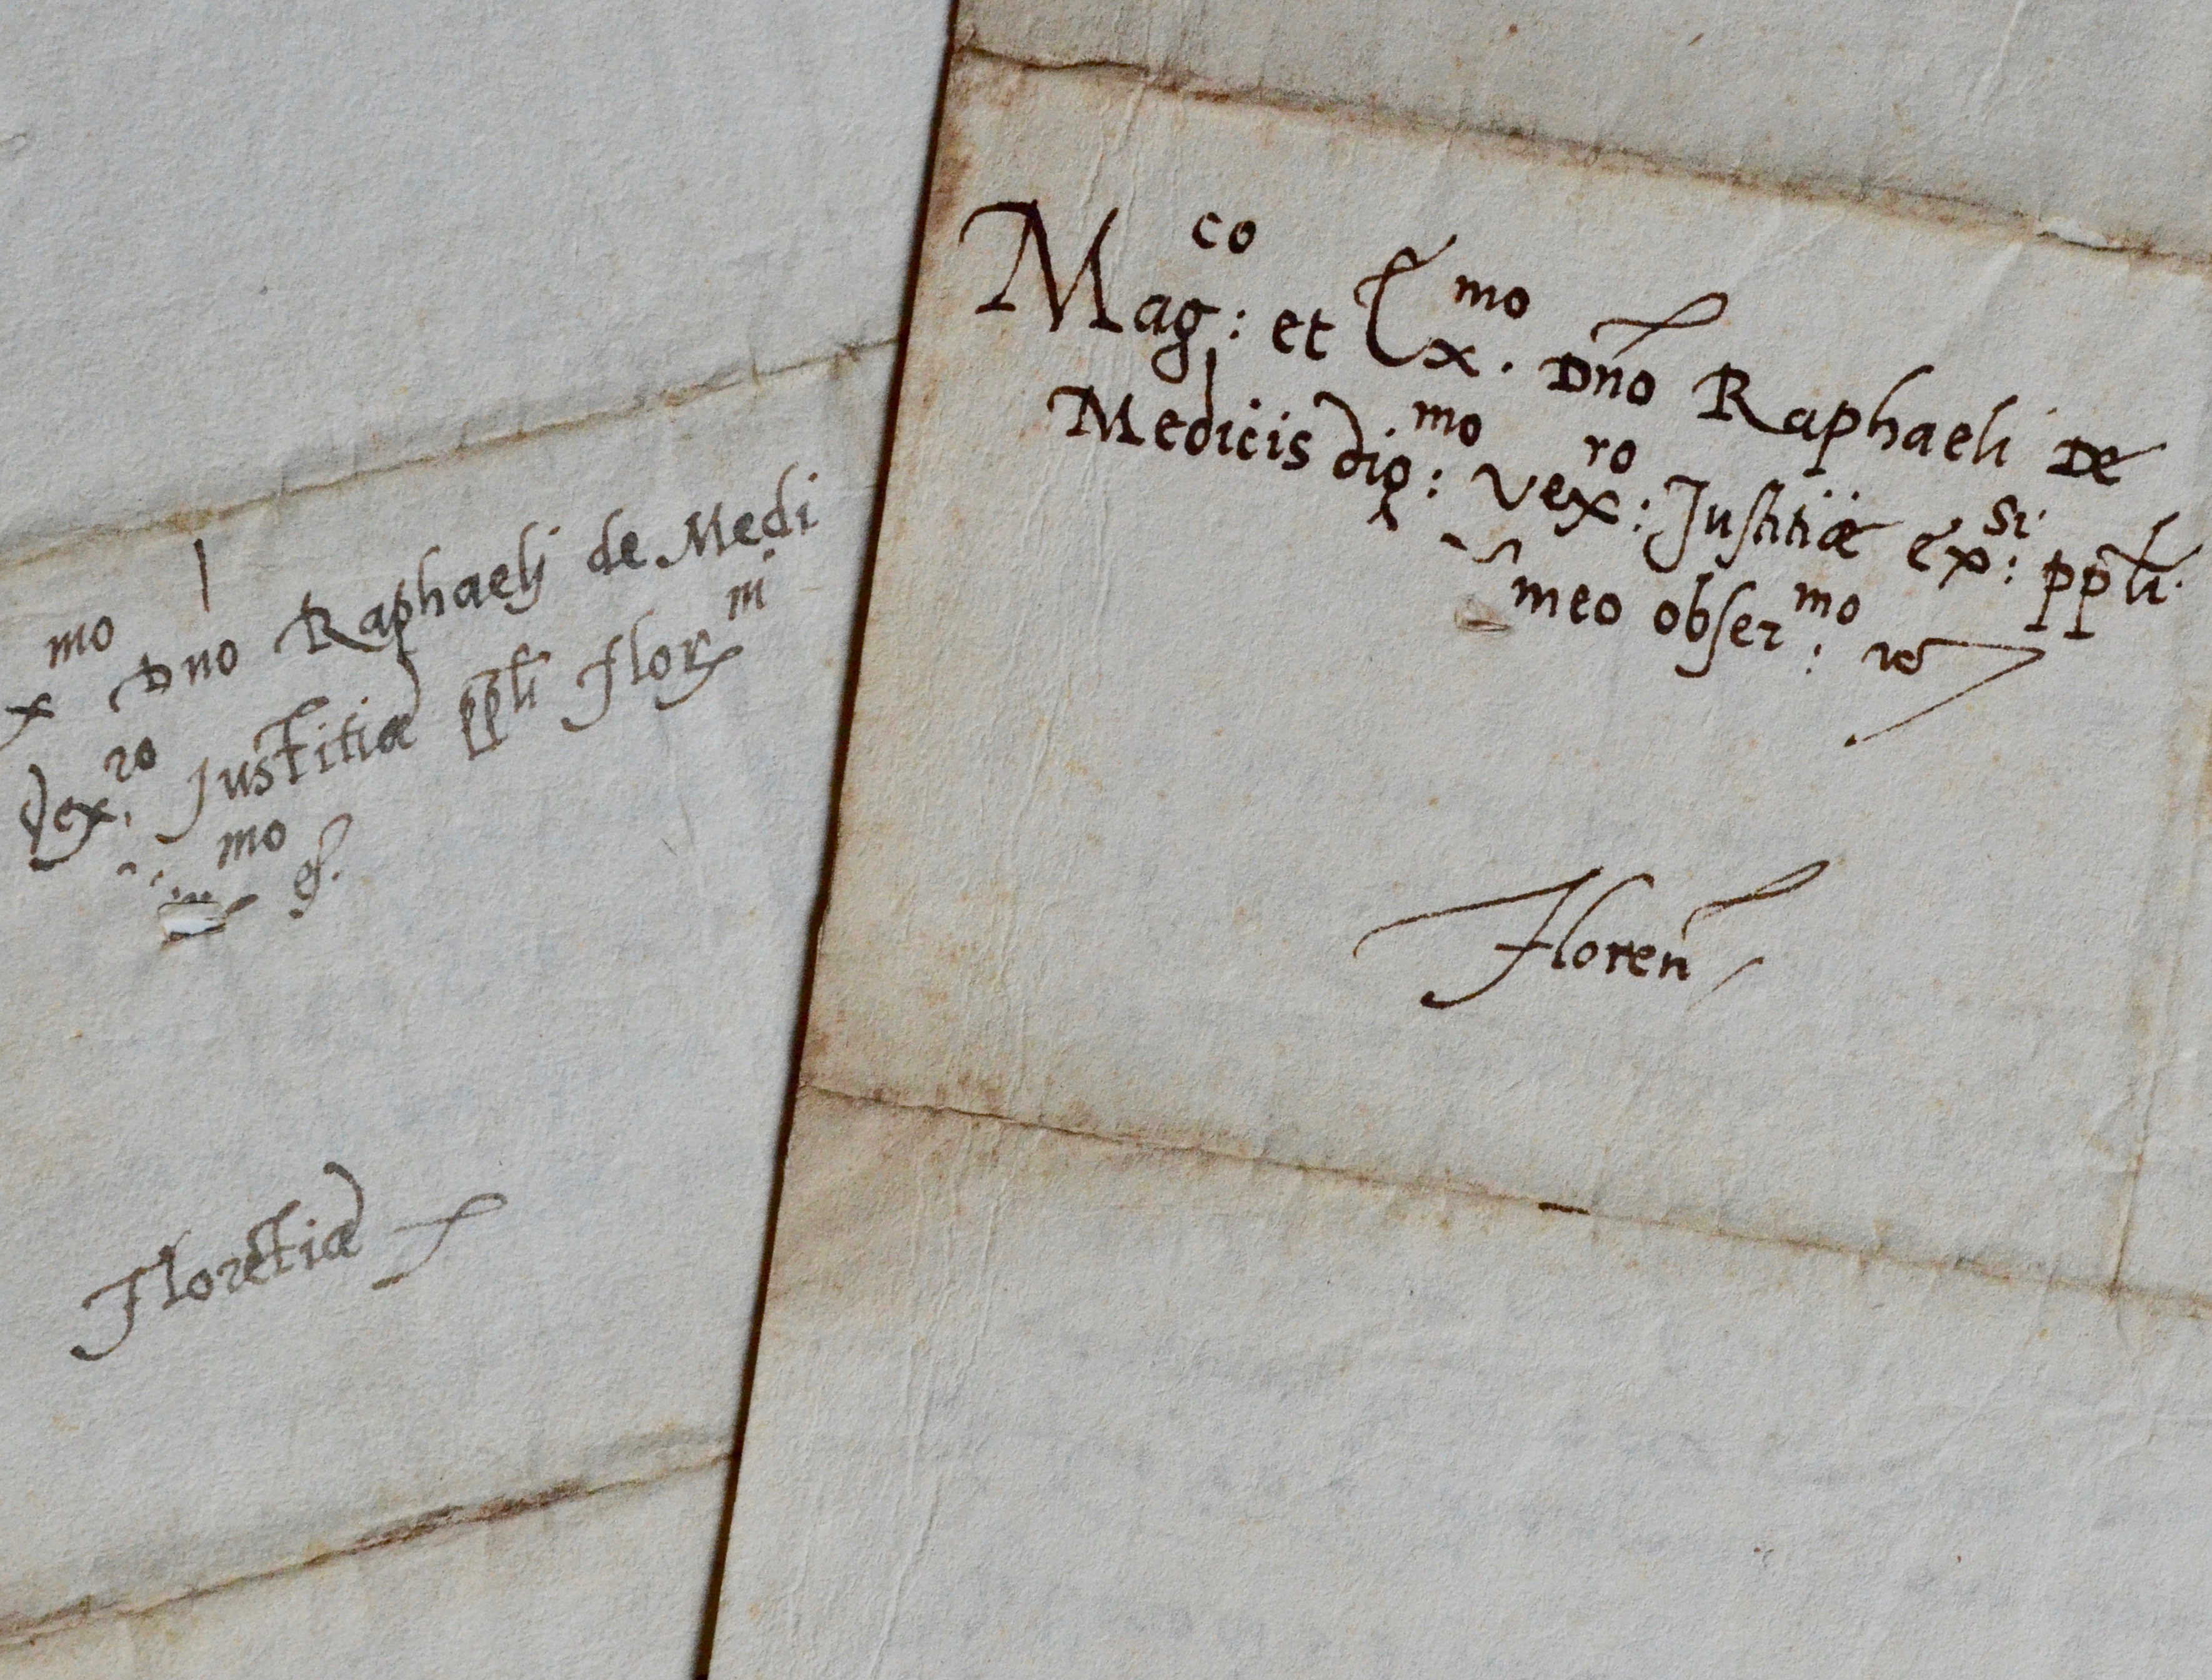 x mo Dno Raphaelj de Medi
Vex: ro Justitiæ ppli flor ni
mo
Floretiæ
Mag:co et Ex.mo Dño Raphaeli De
Medicis dig:mo vex:ro Justitiæ ex:si ppli.
meo obser:mo
Floren